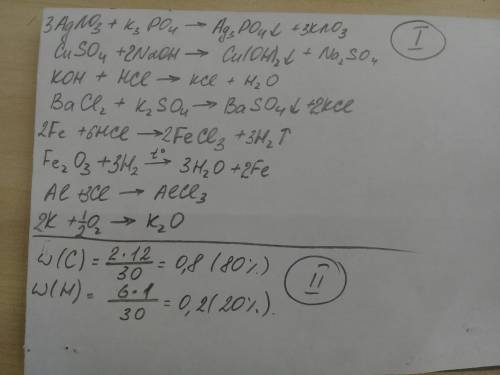 3AgNO₃ + K₃PO₄ → Ag₃PO₄↓ + 3KNO₃
CuSO₄ + 2NaOH → Cu(OH)₂↓ + Na₂SO₄
KOH + HCl → KCl + H₂O
BaCl₂ + K₂SO₄ → BaSO₄↓ + 2KCl
2Fe + 6HCl → 2FeCl₃ + 3H₂↑
Fe₂O₃ + 3H₂ →t° 3H₂O + 2Fe
Al + 3Cl → AlCl₃
2K + ½O₂ → K₂O
I
ω(C) = 2·12/30 = 0,8 (80%)
ω(H) = 6·1/30 = 0,2 (20%).
II